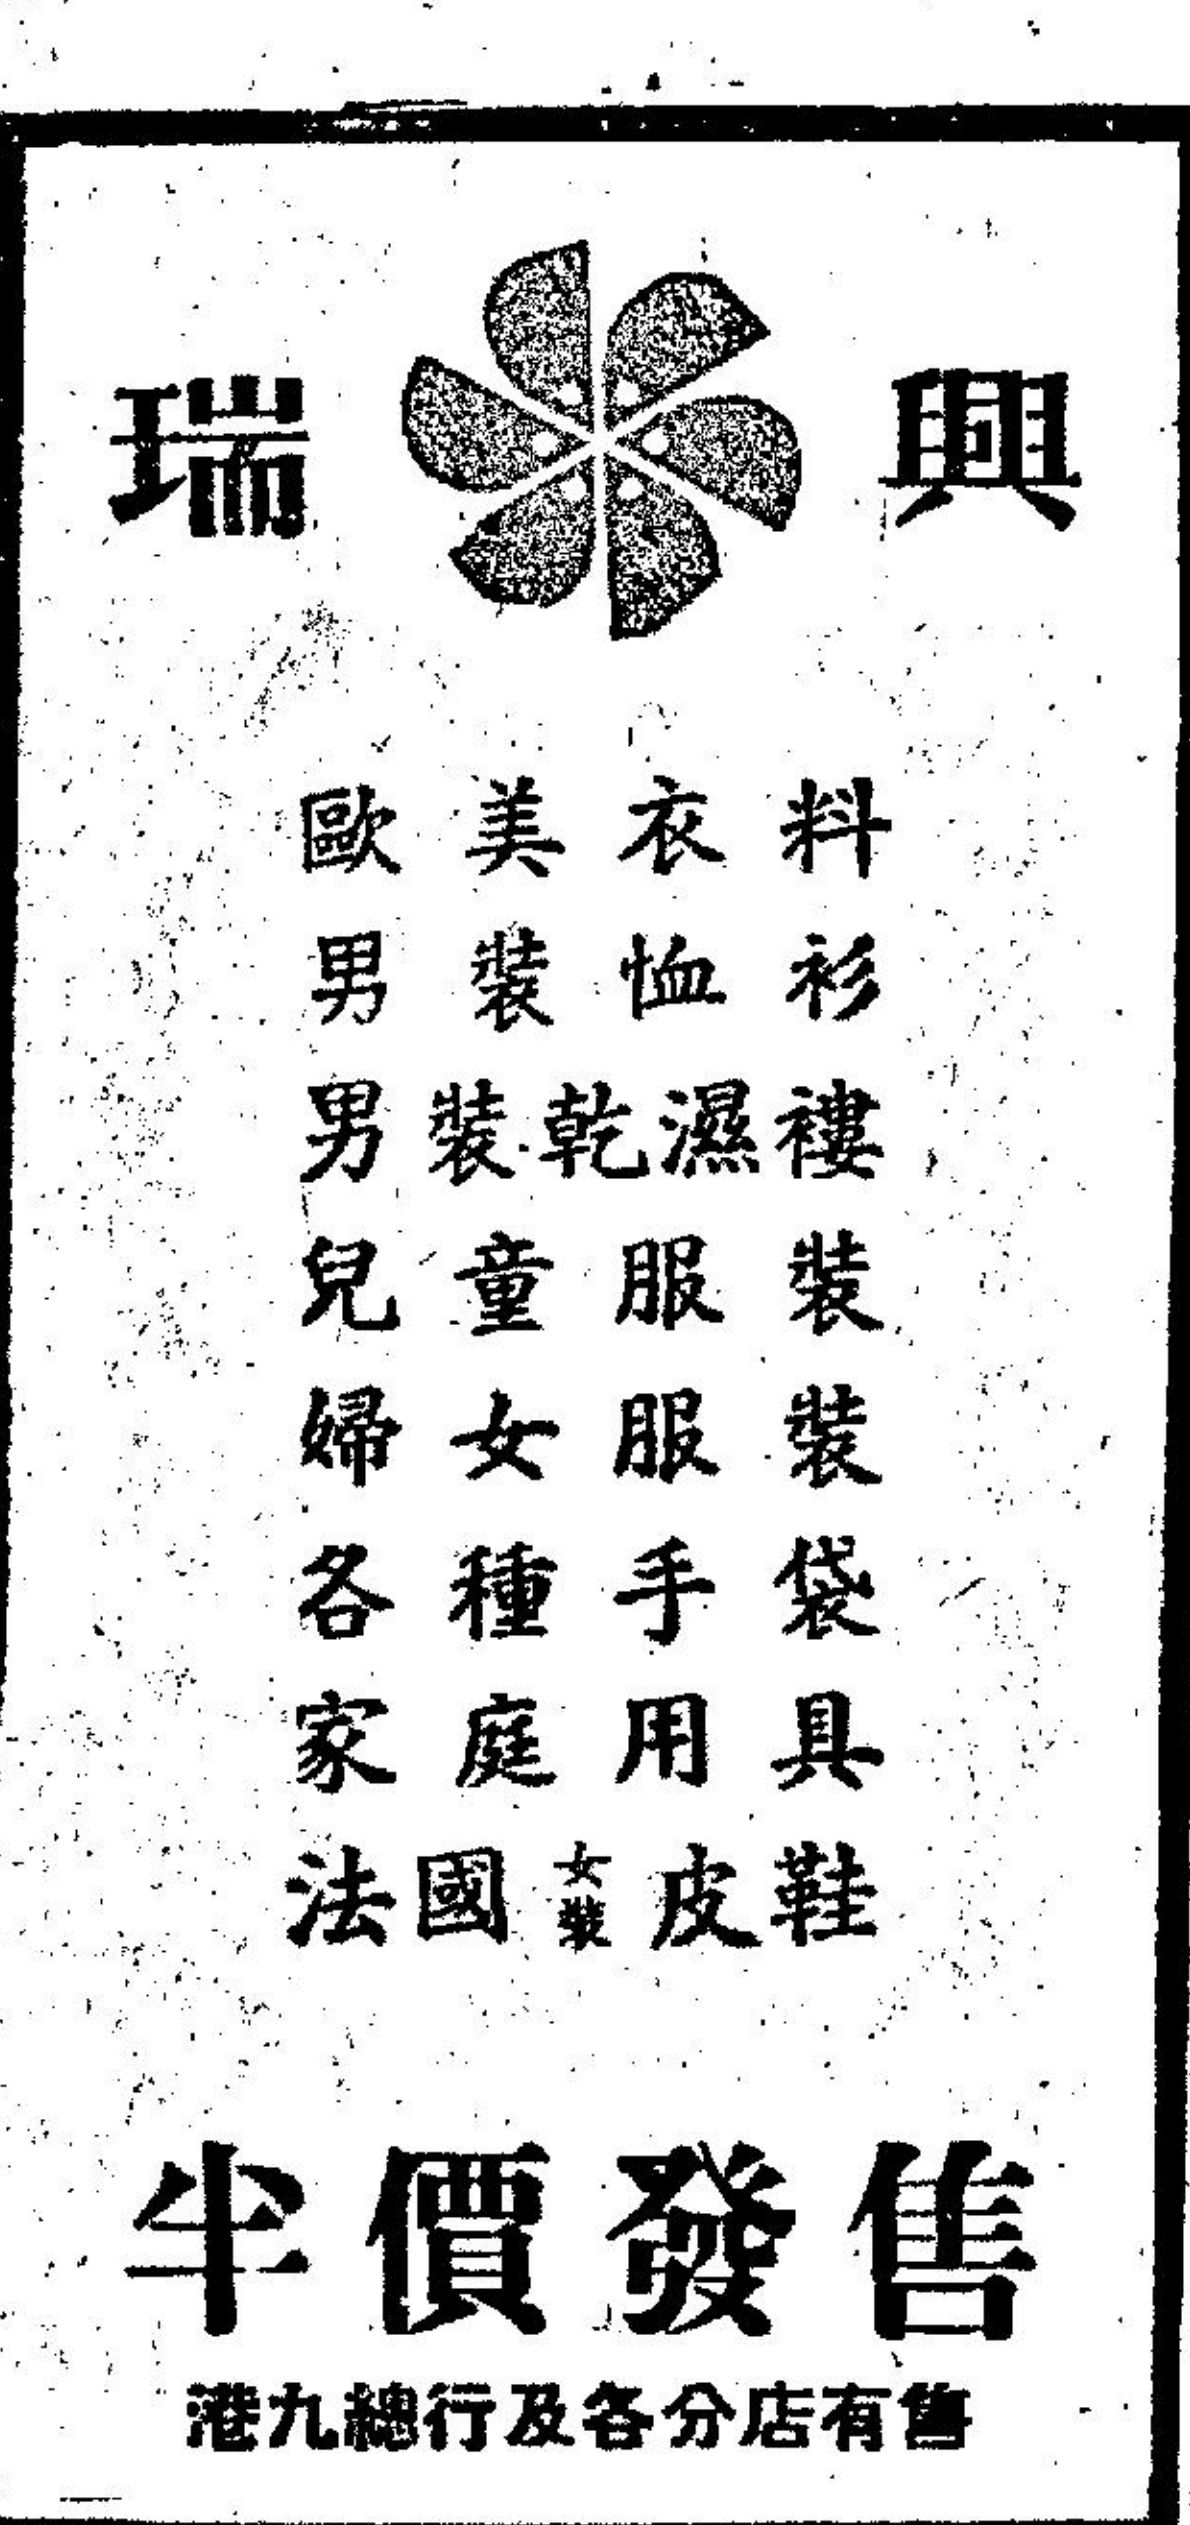 瑞興
歐美衣料
男裝恤衫
男裝乾濕褸
兒童服裝
婦女服裝
各種手袋
家庭用具
法國女裝皮鞋
半價發售
港九總行及各分店有售